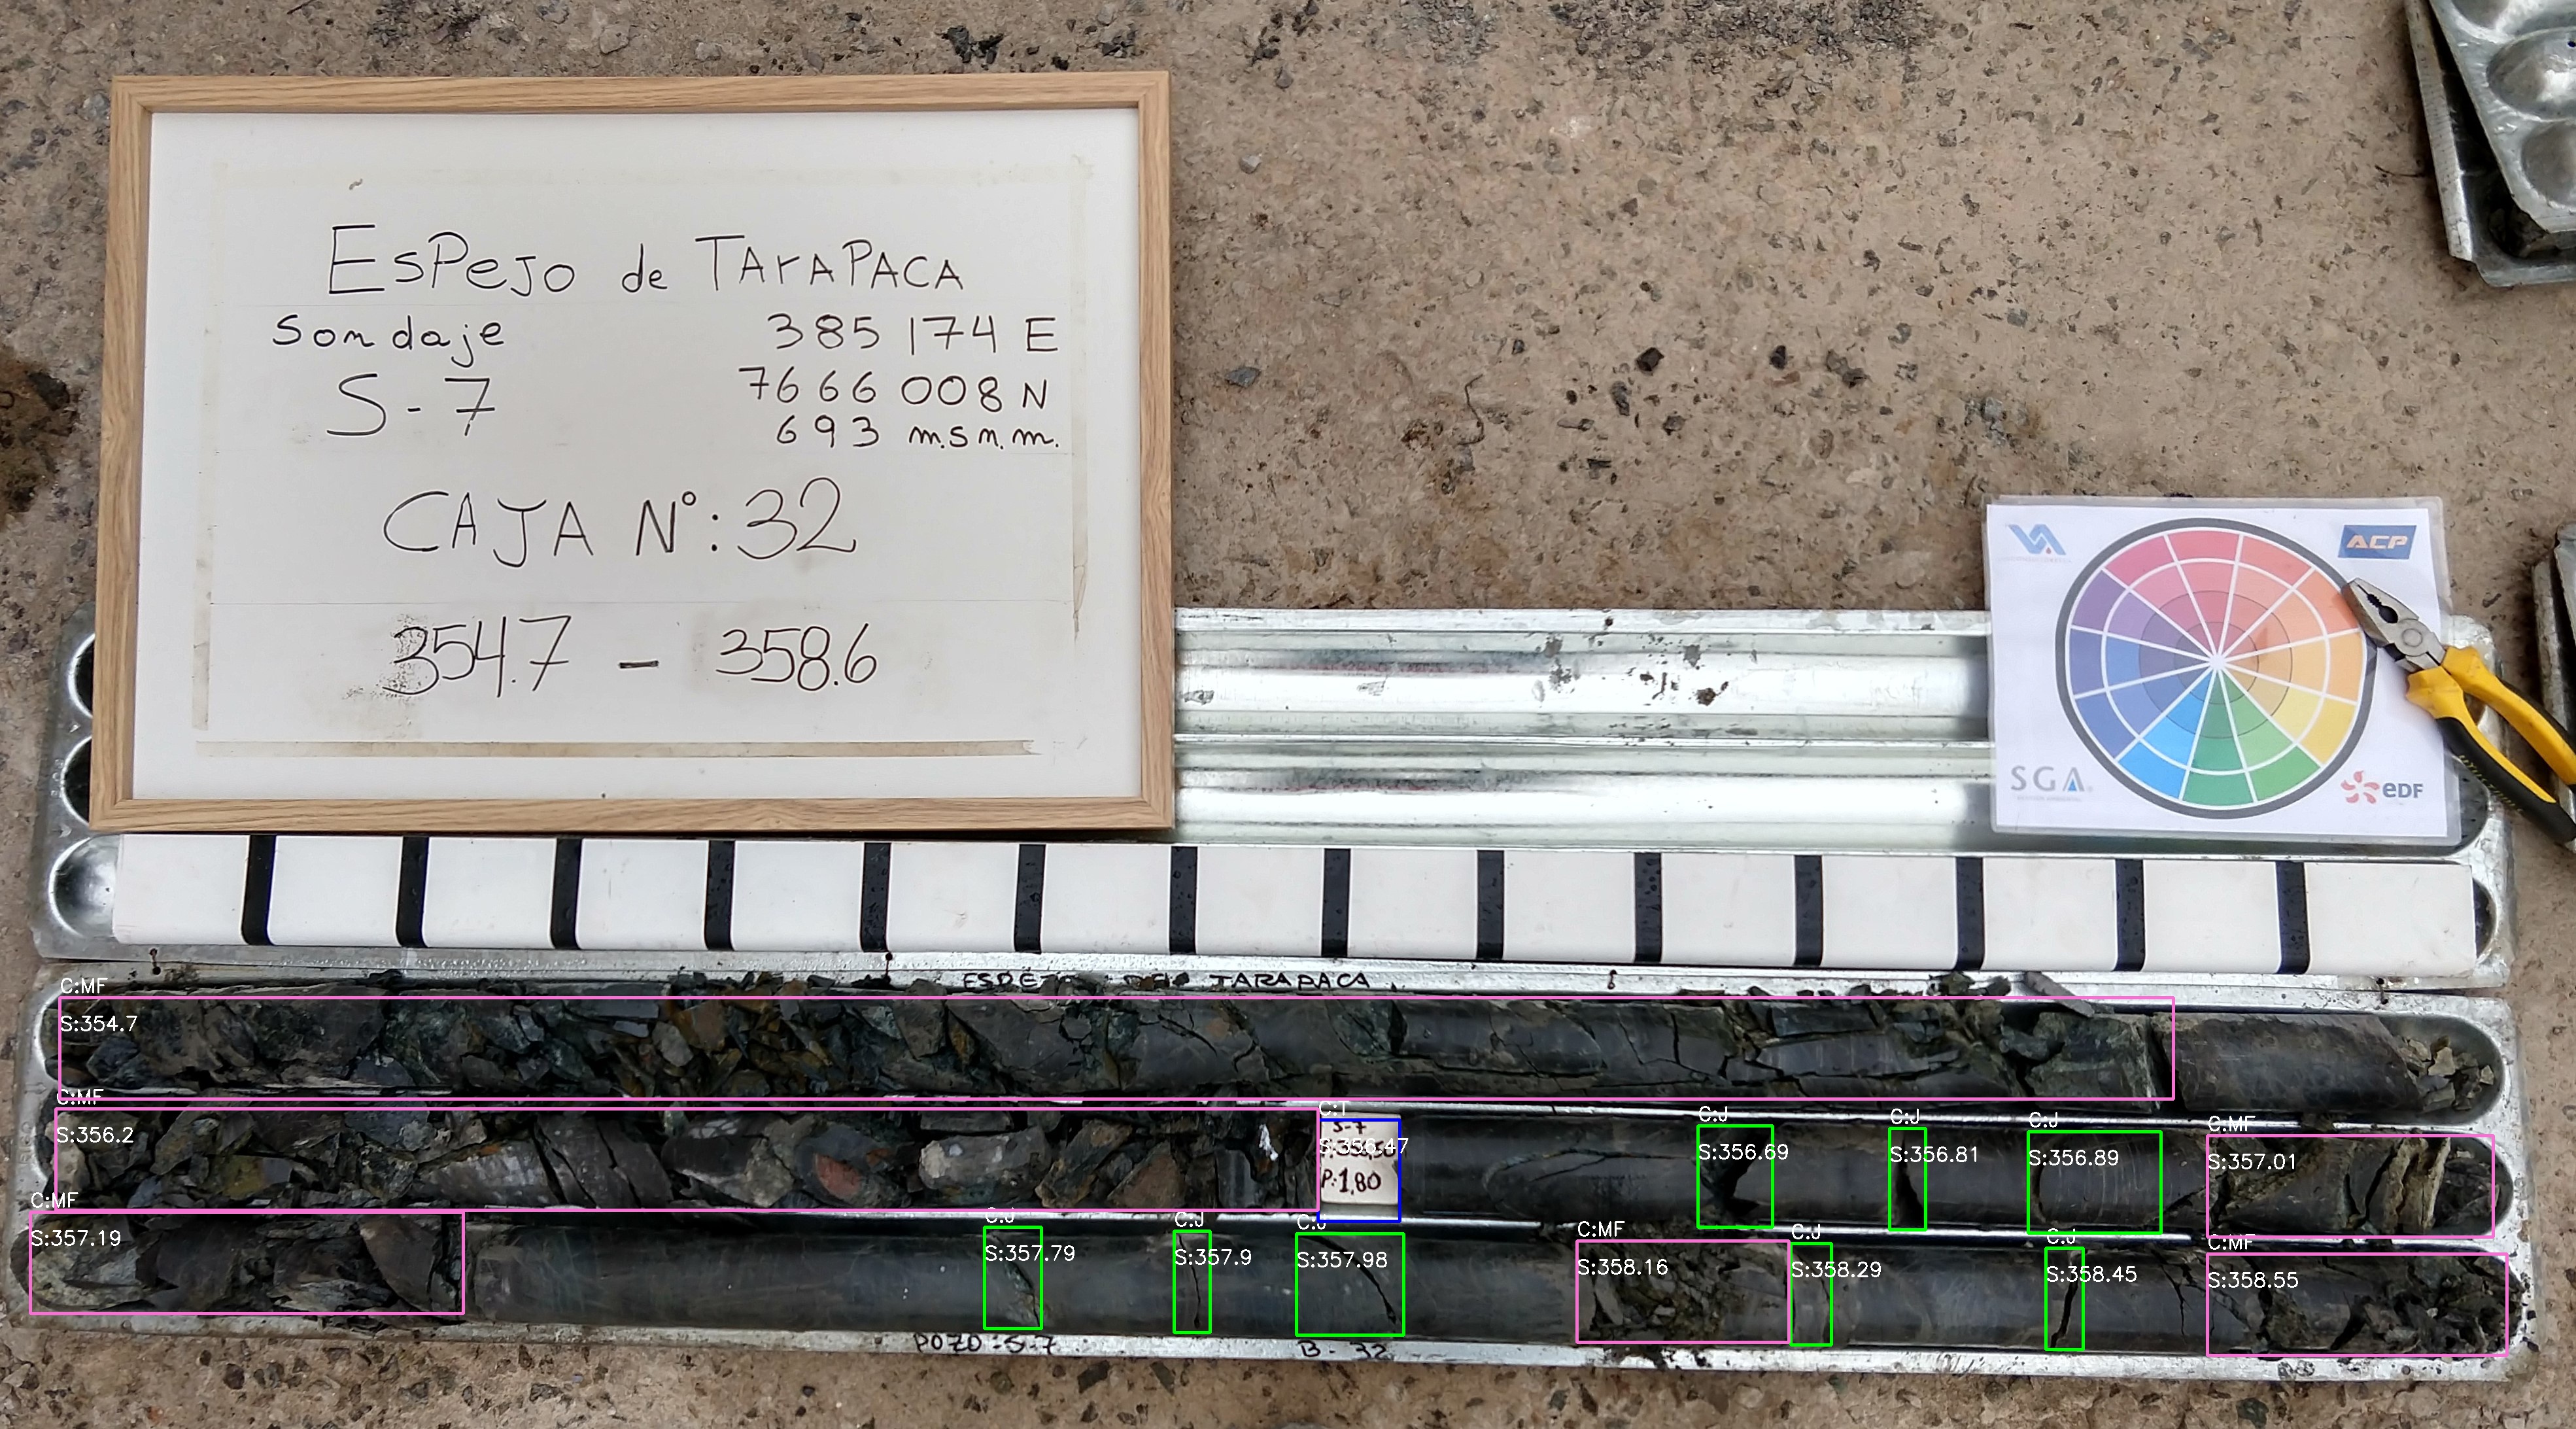 EsPeJo de TArAPACA
Sondaje
385174 E
S-7
7666 008 N
693 m.s.n.m.
CAJA N°: 32
354.7 - 358.6
ACP
SGA
eDF
TARAPACA
C:MF
S:354.7
C:MF
S:356.2
C:T
S:356.47
S-7
P:1,80
C:J
S:356.69
C:J
S:356.81
C:J
S:356.89
C:MF
S:357.01
C:MF
S:357.19
C:J
S:357.79
C:J
S:357.9
C:J
S:357.98
C:MF
S:358.16
C:J
S:358.29
C:J
S:358.45
C:MF
S:358.55
POZO:S-7
B-32